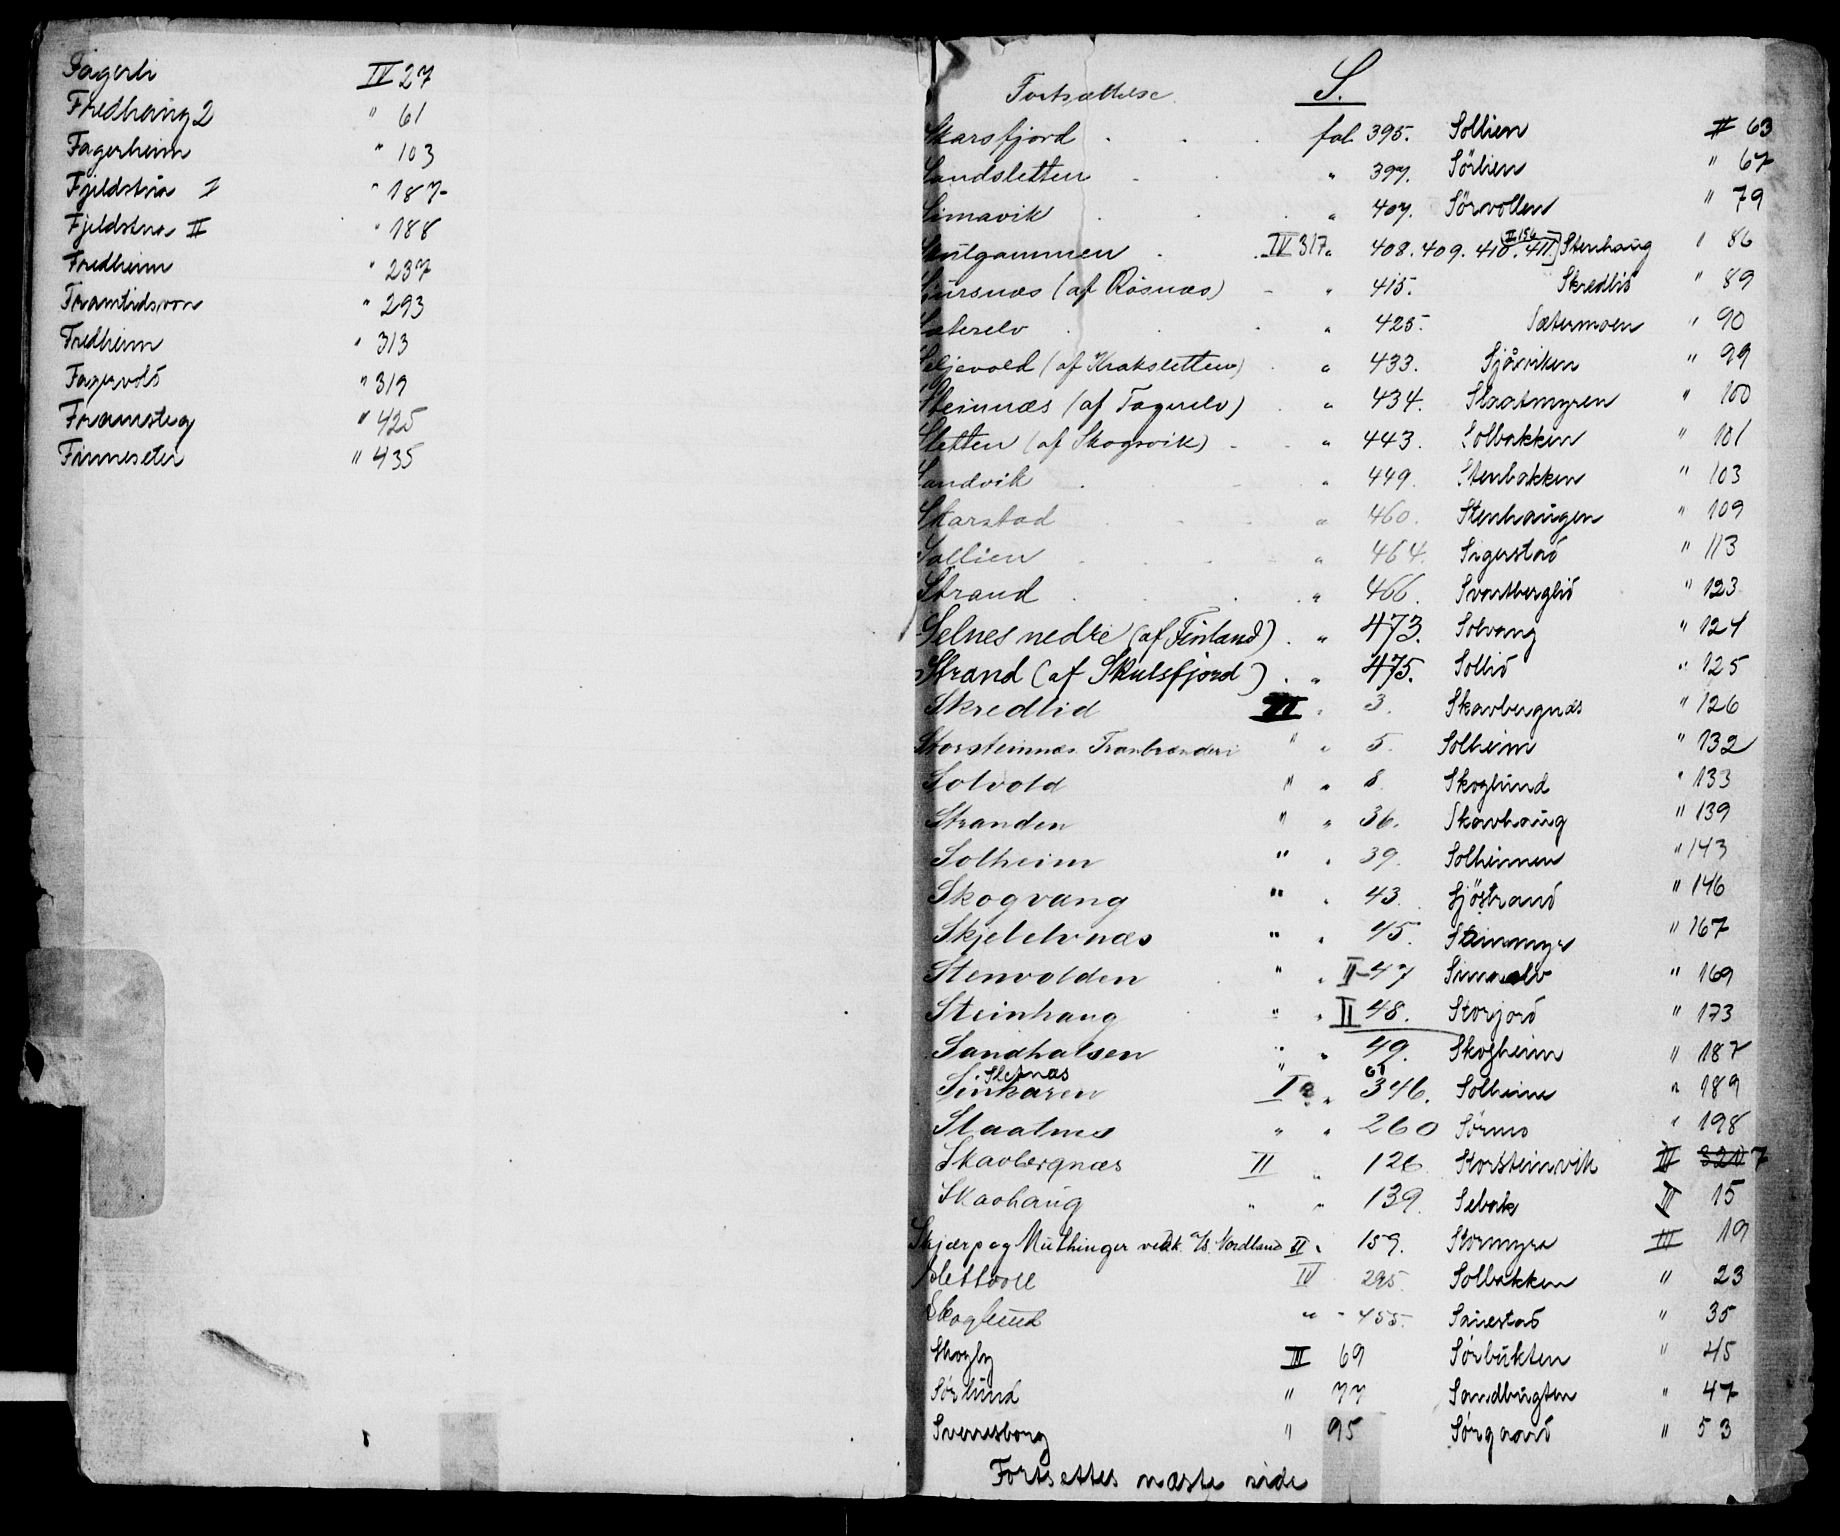 Fagerli IV 27
Fredhaug 2 " 61
Fagerheim " 103
Fjeldstua I " 187
Fjeldstua II " 188
Fredheim " 237
Framtidsvon " 293
Fredheim " 313
Fagervold " 319
Framsteg " 425
Finneseter " 435
Fortsættelse S.
Skarsfjord fol. 395.
Sandsletten " 397.
Simavik " 407.
Skulgammen IV 317 " 408. 409. 410. 411. II 156
Sjursnæs (af Rösnæs) " 415.
Sæterelv " 425.
Seljevold (af Kraksletten) " 433.
Steinnæs (af Fagerelv) " 434.
Sletten (af Skogsvik) " 443.
Sandvik " 449.
Skarstad " 460.
Sollien " 464.
Strand " 466.
Selnes nedre (af Finland) " 473.
Strand (af Skulsfjord) " 475.
Skredlid II " 3.
Storsteinnæs Tranbrænderi " " 5.
Solvold " " 8
Stranden " " 36.
Solheim " " 39.
Skogvang " " 43.
Skjelelvnæs " " 45.
Stenvolden " " II 47
Steinhaug " " II 48.
Sandhalsen " " 49.
Sletnæs " 61
Sinkaren I " 346.
Staalnes " " 260
Skavbergnæs II " 126
Skavhaug " " 139.
Skjærp og Muthinger vedk. a/s. Nordland II " 159.
Slettvoll IV 295.
Skoglund " " 455.
Skogly III 69
Sörlund " 77
Sverresborg " 95
Sollien II 63
Sörlien " 67
Sörvollen " 79
Stenhaug " 86
Skredlid " 89
Sætermoen " 90
Sjåviken " 99
Slaatmyren " 100
Solbakken " 101
Stenbakken " 103
Stenhaugen " 109
Sigerstad " 113
Svartberglid " 123
Solvang " 124
Sollid " 125
Skavbergnæs " 126
Solheim " 132
Skoglund " 133
Skavhaug " 139
Solheimen " 143
Sjöstrand " 146
Steinmyr " 167
Simaelv " 169
Storjord " 173
Skogheim " 187
Solheim " 189
Sörmo " 198
Storsteinvik III 320 7
Sebak III 15
Stormyra III 19
Solbakken " 23
Sanestad " 35
Sörbukten " 45
Sandbugten " 47
Sørgaard " 53
Fortsettes næste side